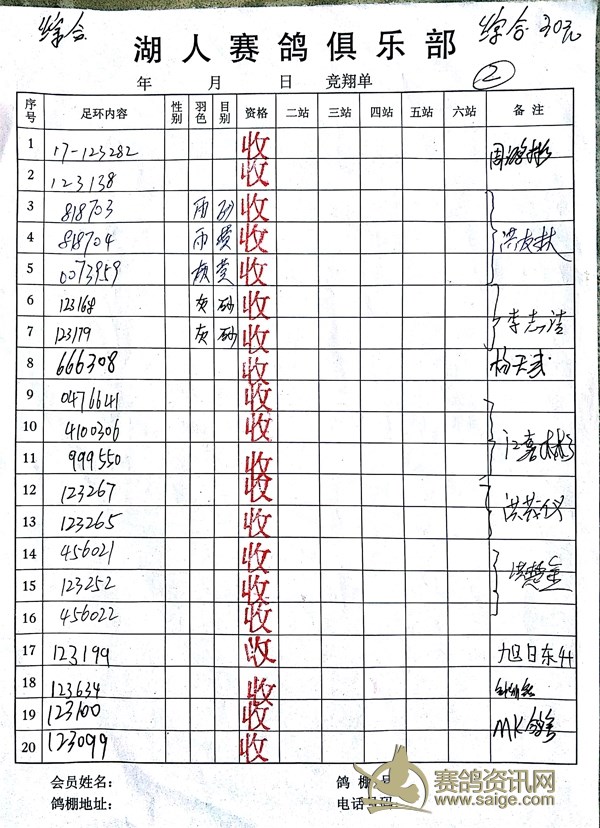 综合 综合 30元
湖人赛鸽俱乐部
年 月 日 竞翔单 ②
序号 足环内容 性别 羽色 目别 资格 二站 三站 四站 五站 六站 备注
1 17-123282 收
2 123138 收
3 818703 雨 砂 收
4 818704 雨 黄 收
5 0073959 黄 收
6 123168 灰 砂 收 李志清
7 123179 灰 砂 收
8 666308 收 杨天武
9 0476641 收
10 4100306 收
11 999550 收
12 123267 收 洪茂仪
13 123265 收
14 456021 收
15 123252 收
16 456022 收
17 123199 收 旭日东升
18 123634 收
19 123100 收 MK
20 123099 收
会员姓名: 鸽棚号:
鸽棚地址: 电话号码:
赛鸽资讯网
www.saige.com